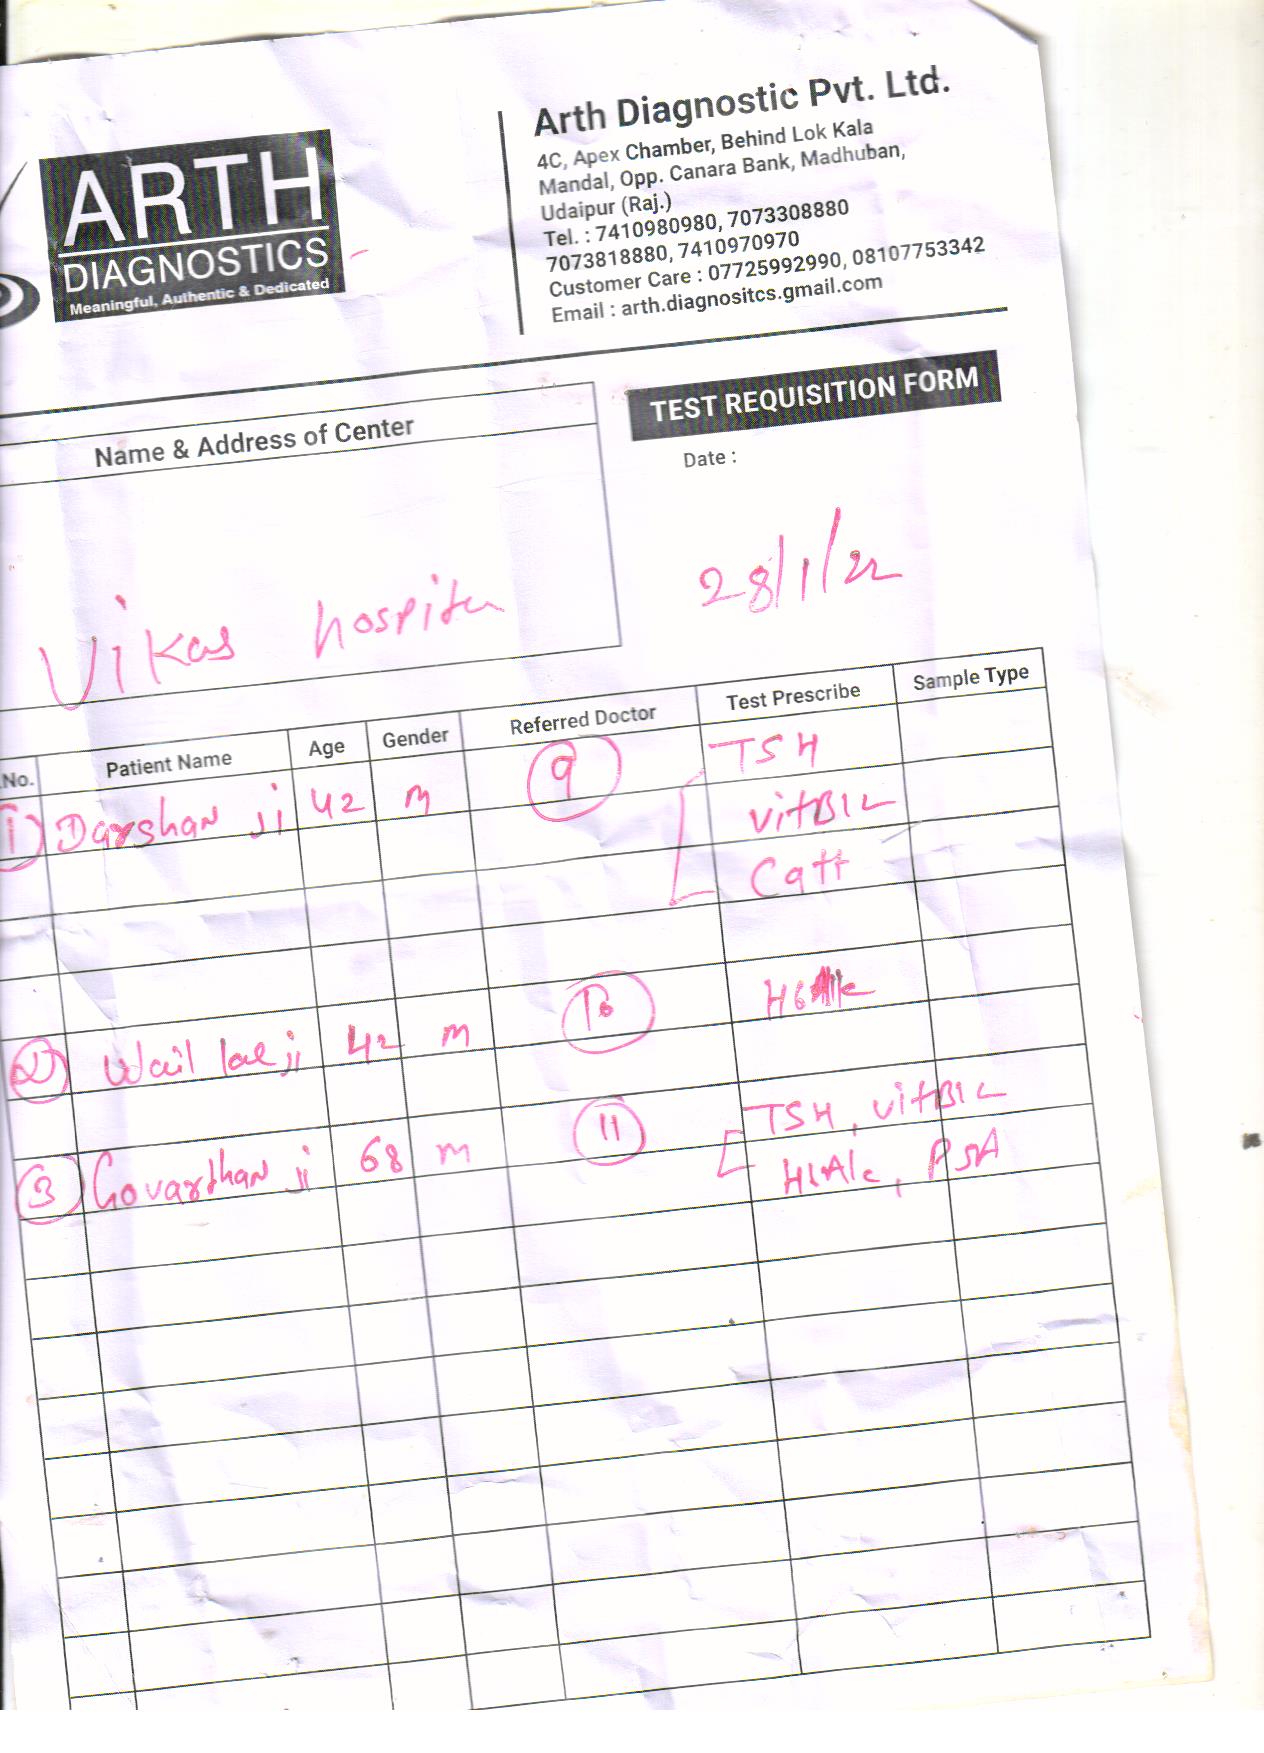 ARTH
DIAGNOSTICS
Meaningful, Authentic & Dedicated
Arth Diagnostic Pvt. Ltd.
4C, Apex Chamber, Behind Lok Kala
Mandal, Opp. Canara Bank, Madhuban,
Udaipur (Raj.)
Tel. : 7410980980, 7073308880
7073818880, 7410970970
Customer Care : 07725992990, 08107753342
Email : arth.diagnositcs.gmail.com
TEST REQUISITION FORM
Name & Address of Center
Date :
28/1/22
Vikas hospital
.No. Patient Name Age Gender Referred Doctor Test Prescribe Sample Type
1) Darshan Ji 42 m 9 TSH
VitB12
2) 42 m 10
3) Govardhan Ji 68 m 11 TSH, VitB12
PSA